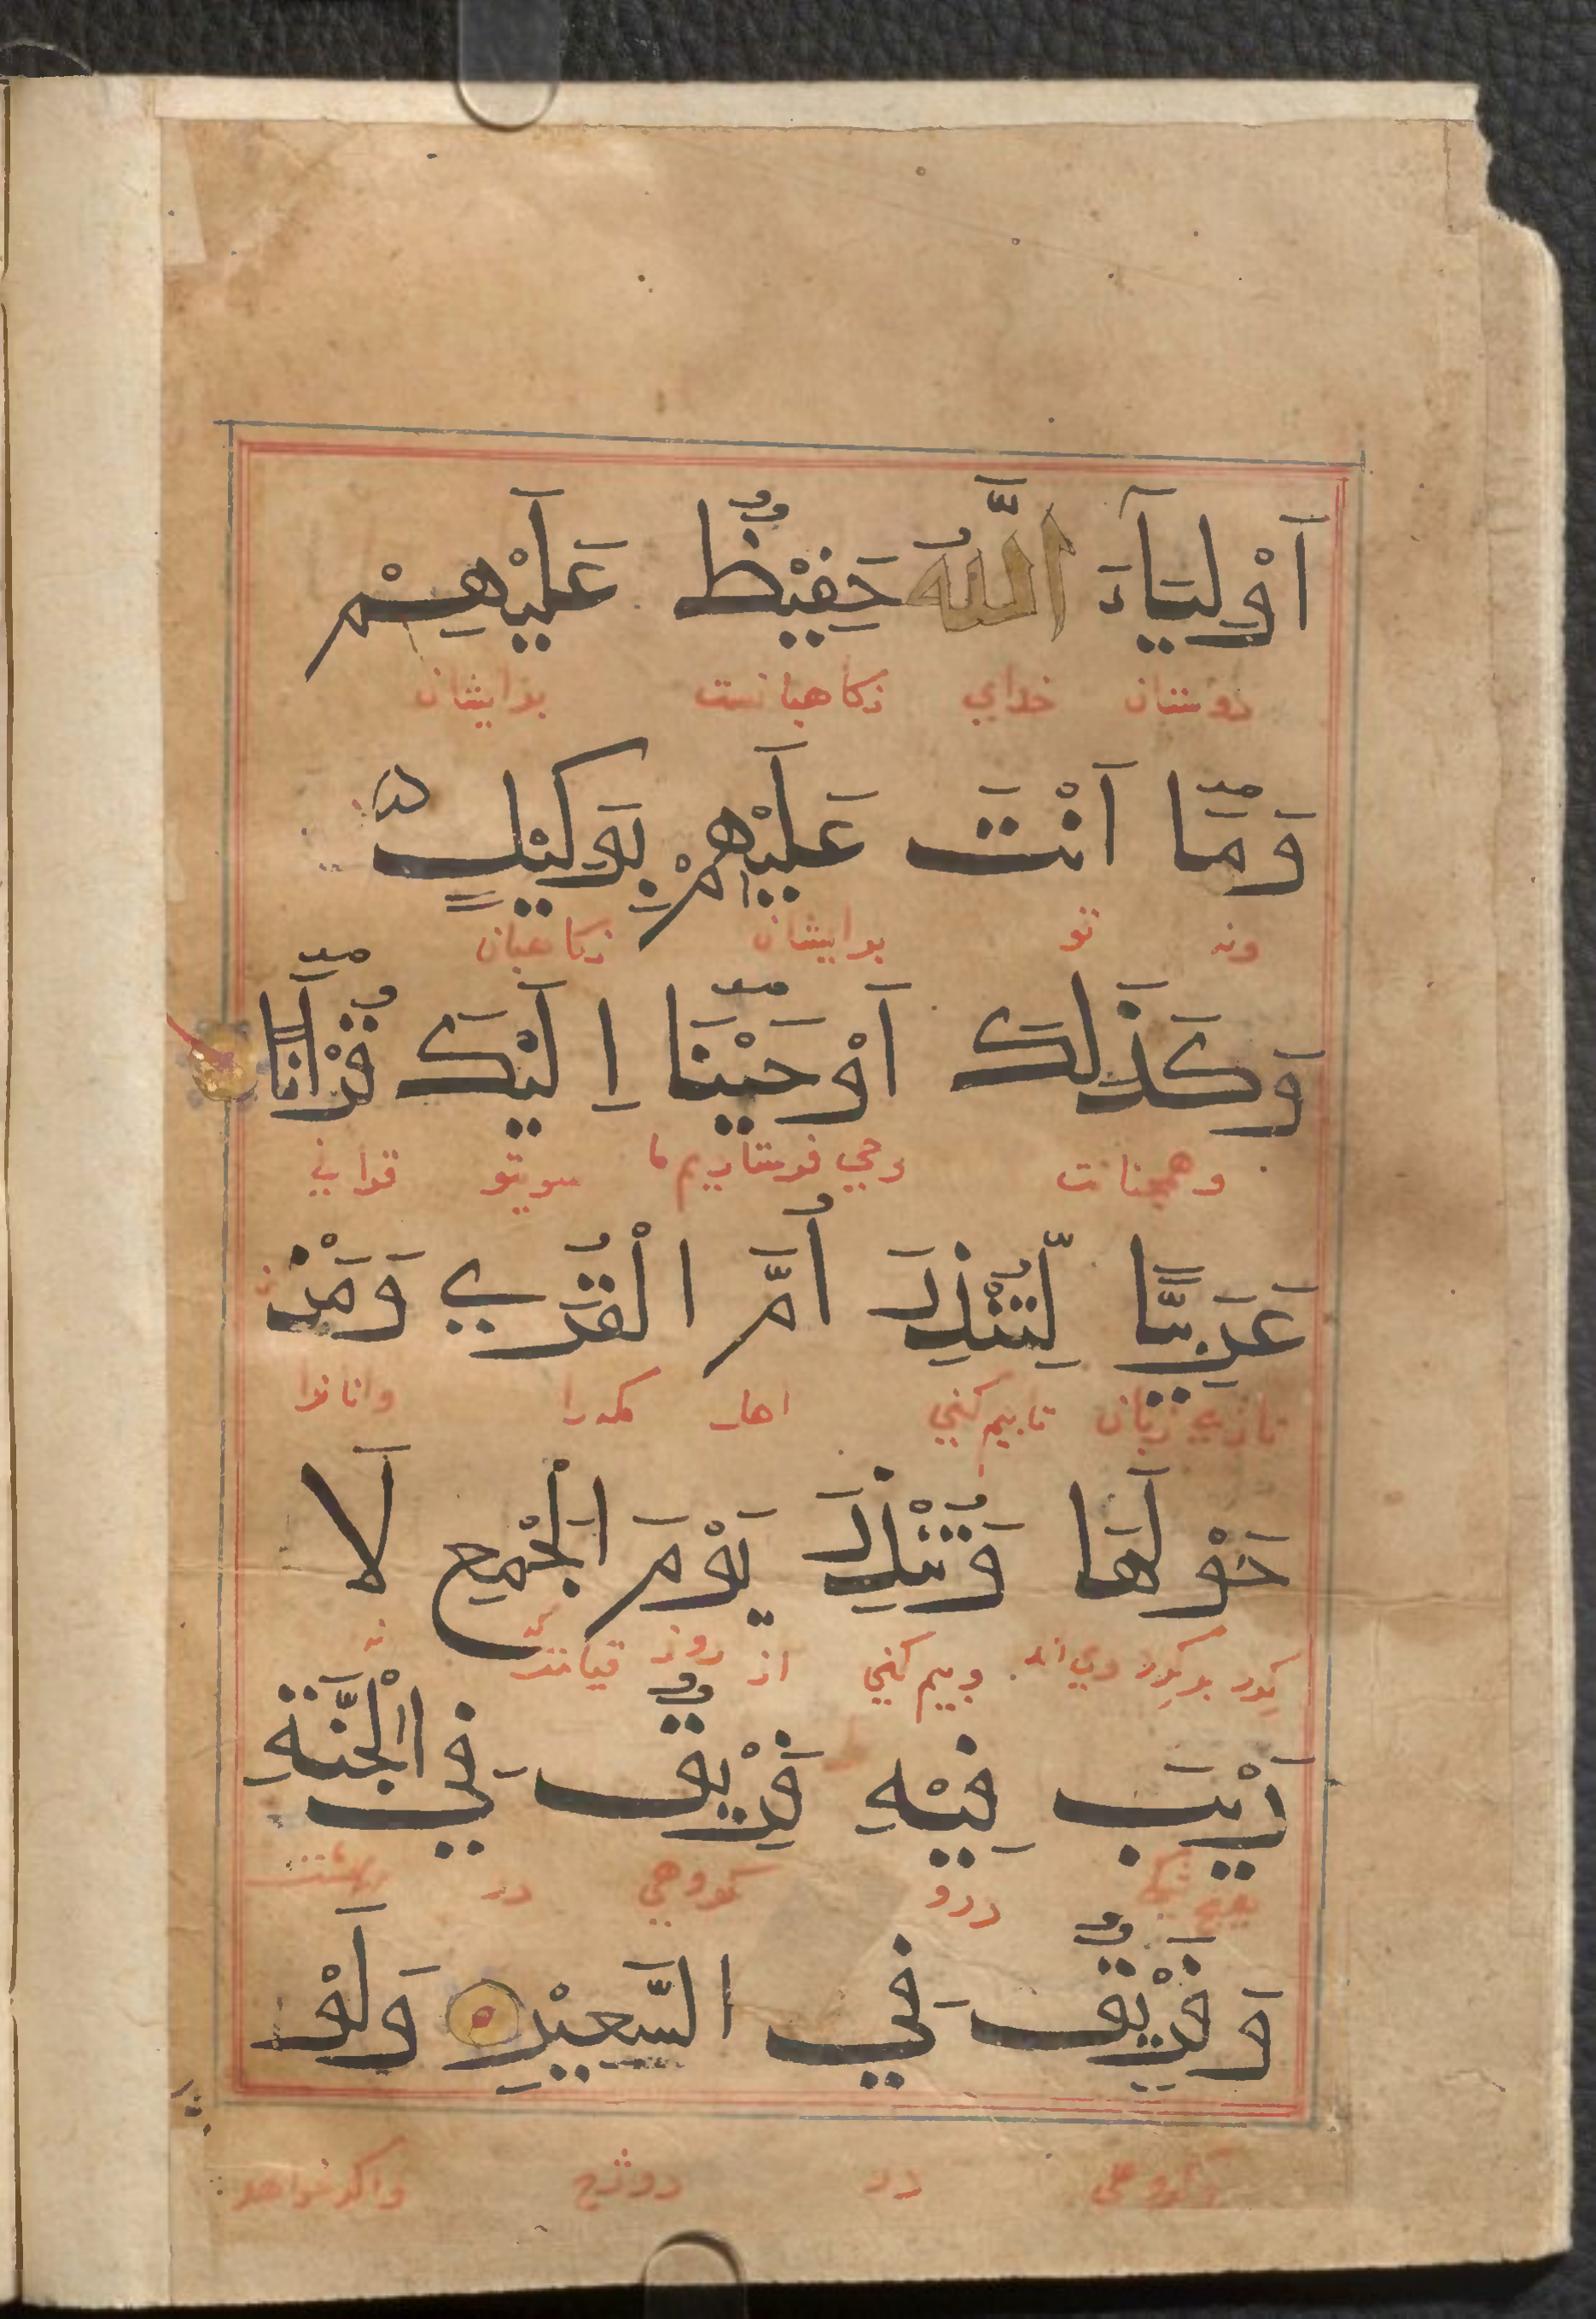 اَوْلِيَآءَ اللَّهُ حَفِيْظٌ عَلَيْهِمْ
دوستان خدای نكاهبانست برایشان
وَمَّا اَنْتَ عَلَيْهِمْ بِوَكِيْلٍ
ونه تو برایشان نكاهبان
وَكَذَلِكَ اَوْحَيْنَا اِلَيْكَ قُرْاٰنًا
وهمچنانت وحي فرستاديم ما سويتو قرانی
عَرَبِيًّا لِّتُنْذِرَ اُمَّ الْقُرَي وَمَنْ
تازی زبان تابيم كني اهل مكه را وانانرا
حَوْلَهَا وَتُنْذِرَ يَوْمَ الْجَمْعِ لَا
كرد بر كرد وی اند وبيم كني از روز قيامت نه
رَيْبَ فِيْهِ فَرِيْقٌ فِي الْجَنَّةِ
هيچ شكی درو كروهي در بهشت
وَفَرِيْقٌ فِي السَّعِيْرِ وَلَوْ
وكروهی در دوزخ واكر خواهد